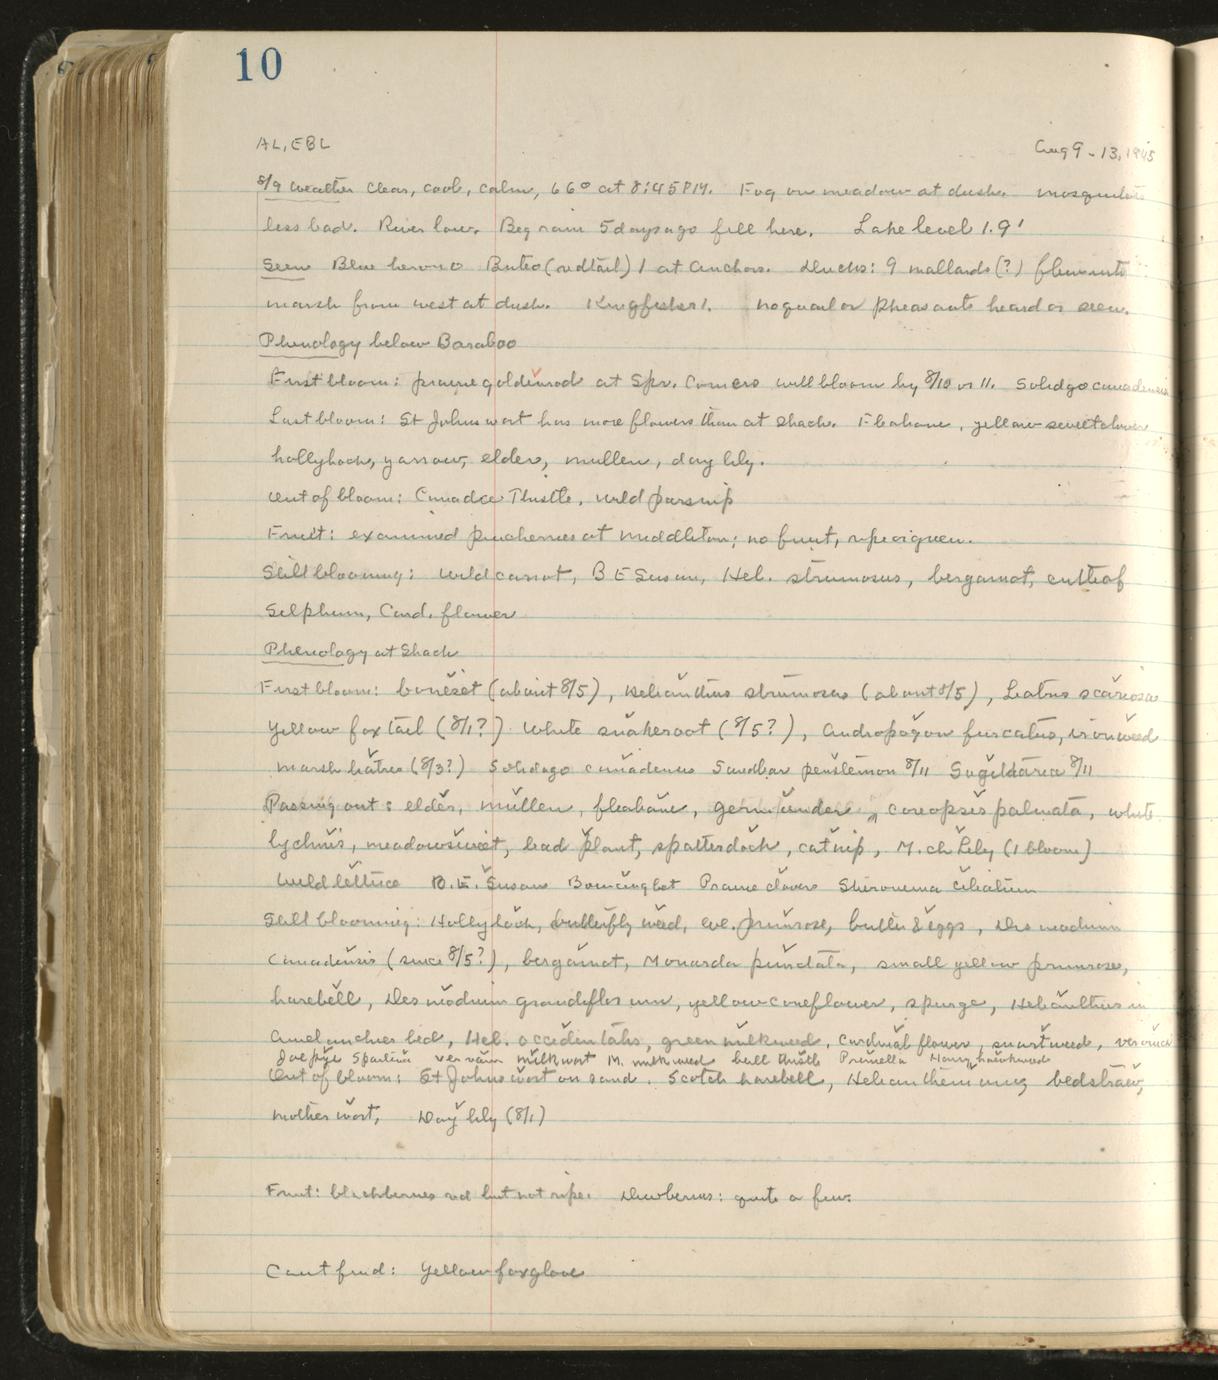 10
AL, EBL Aug 9-13, 1945
8/9 Weather Clear, cool, calm, 66° at 8:45 PM. Fog on meadow at dusk. Mosquitoes
less bad. River low. Big rain 5 days ago fell here. Lake level 1.9'
Seen Blue heron Buteo (redtail) 1 at Anchors. Ducks: 9 mallards (?) flew into
marsh from west at dusk. Kingfisher 1. No quail or pheasants heard or seen.
Phenology below Baraboo
First bloom: prairie goldenrod at Spr. Corners will bloom by 8/10 or 11. Solidago canadensis
Last bloom: St Johnswort has more flowers than at shack. Fleabane, yellow sweetclover
hollyhock, yarrow, elder, mullen, day lily.
Out of bloom: Canada Thistle, wild parsnip
Fruit: examined at Middleton; no fruit, ripe or green.
Still blooming: Wild carrot, B E Susan, Hel. strumosus, bergamot, cutleaf
Silphium, Card. flower
Phenology at Shack
First bloom: boneset (about 8/5), Helianthus strumosus (about 8/5), Liatris scariosa
Yellow foxtail (8/1?) White snakeroot (8/5?), Andropogon furcatus, ironweed
marsh liatris (8/3?) Solidago canadensis Sandbar penstemon 8/11 Sagittaria 8/11
Passing out: elder, mullen, fleabane, germander, coreopsis palmata, white
lychnis, meadowsweet, lead plant, spatterdock, catnip, Mich Lily (1 bloom)
Wild lettuce B.E. Susans Bouncingbet Prairie clover Steironema ciliatum
Still blooming: Hollyhock, butterfly weed, eve. primrose, butter & eggs, Desmodium
Canadensis (since 8/5?), bergamot, Monarda punctata, small yellow primrose,
harebell, Desmodium grandiflorum, yellow coneflower, spurge, Helianthus in
Amelanchier bed, Hel. occidentalis, green milkweed, Cardinal flower, smartweed, veronica
Joe pye Spartina vervain milkwort M. milkweed bull thistle Prunella Hairy hawkweed
Out of bloom: St Johnswort on sand, Scotch harebell, Helianthemum, bedstraw,
motherwort, Day lily (8/1)
Fruit: blackberries red but not ripe. Dewberries: quite a few.
Cant find: Yellow foxglove